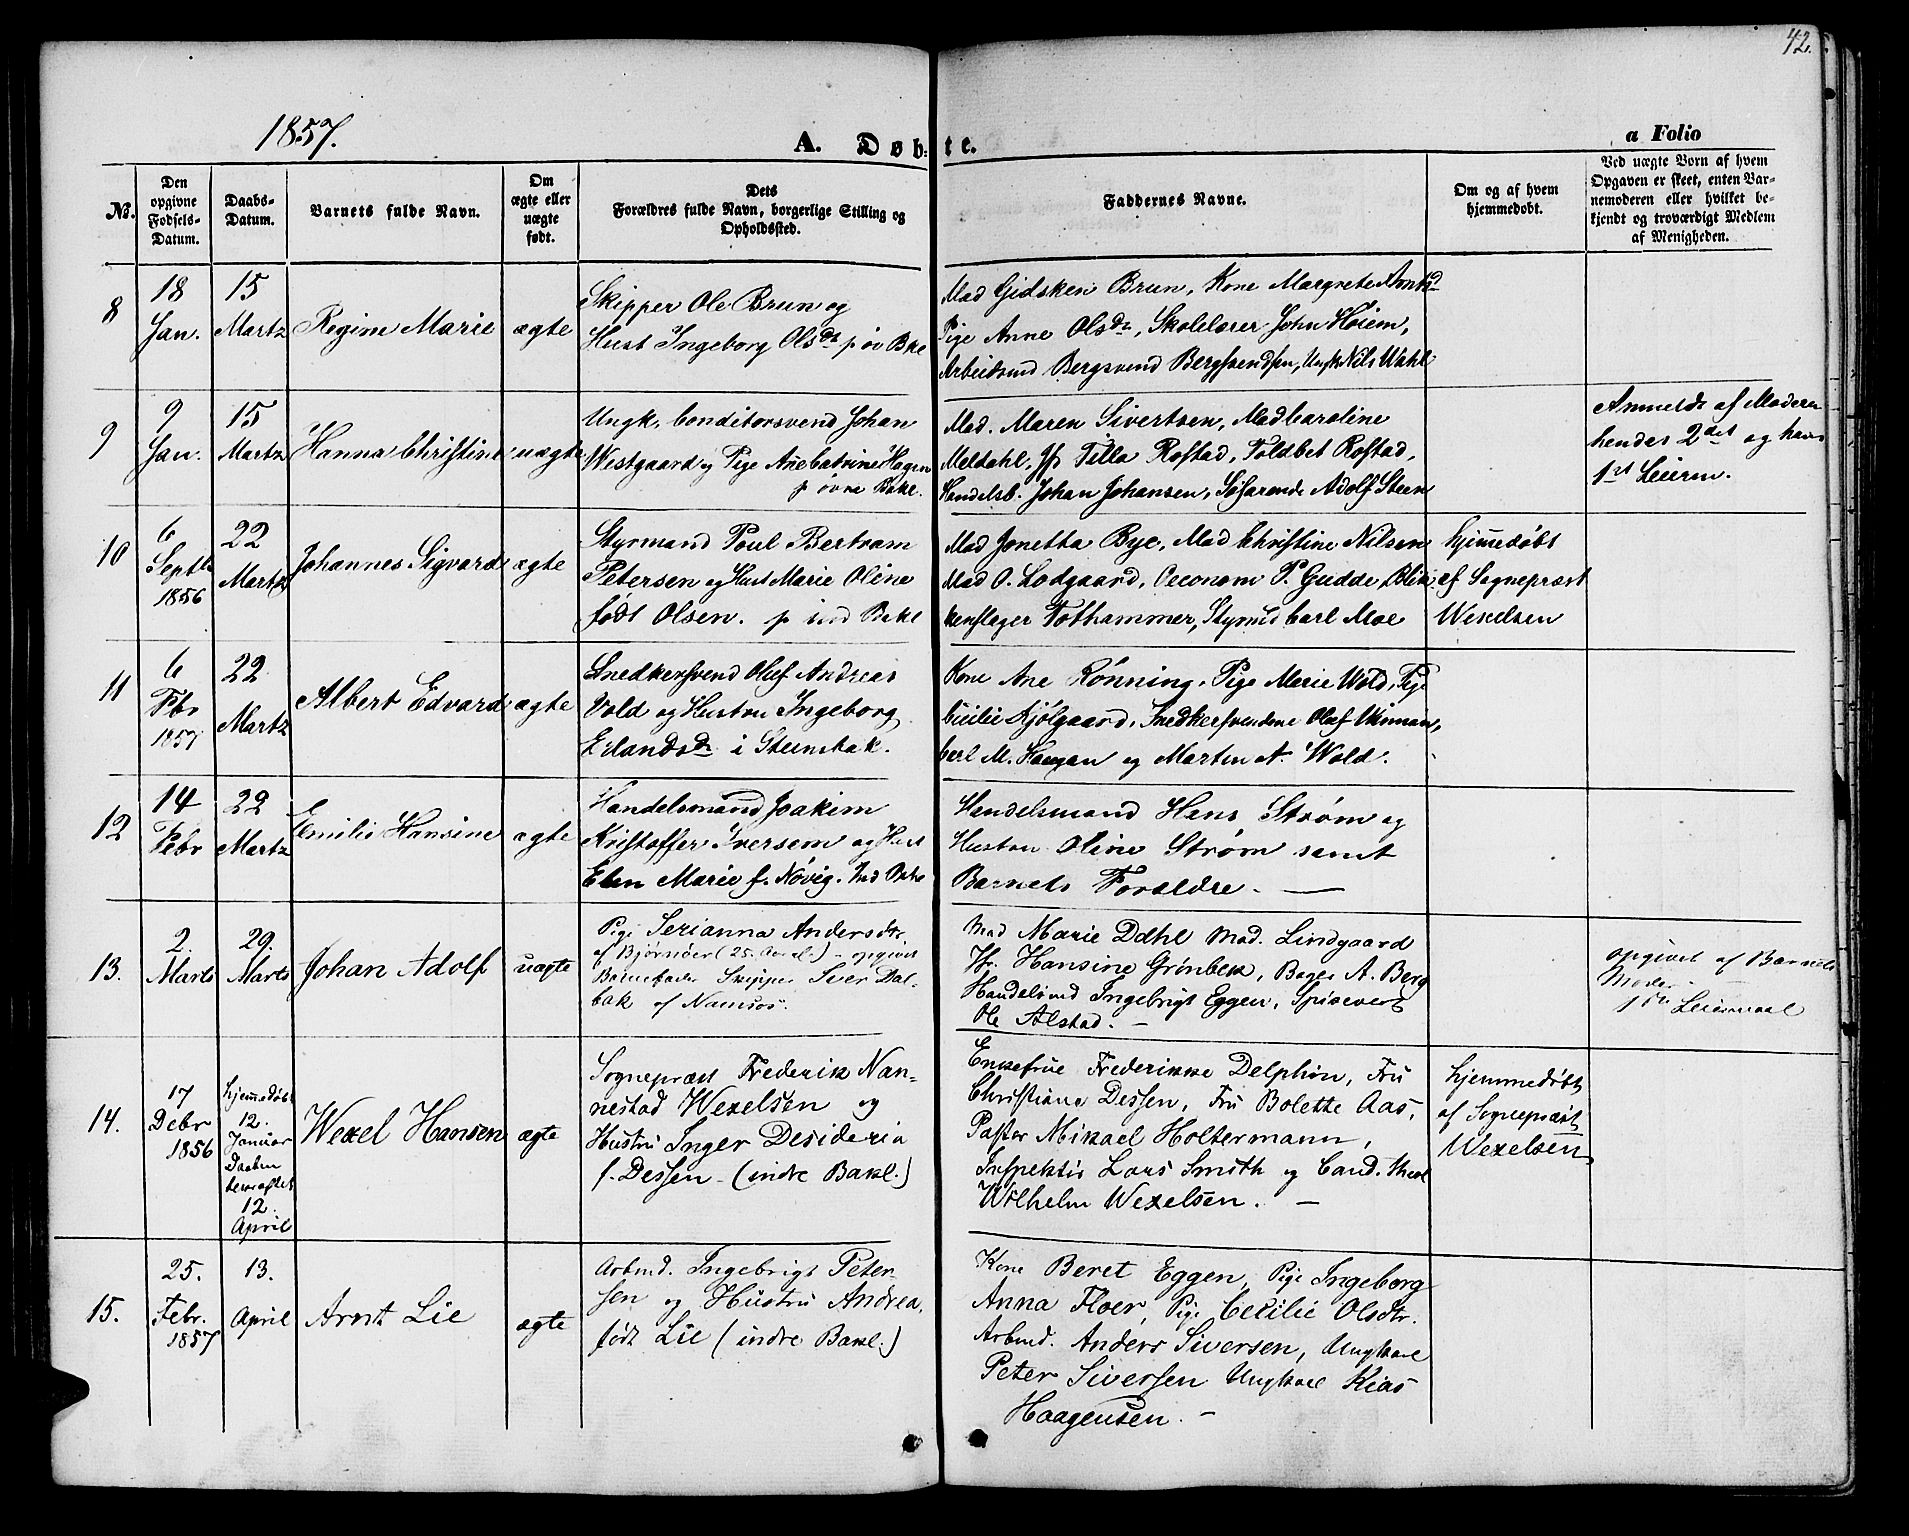 42.
1857.
A. Døbte.
a Folio
No.
Den opgivne Fødsels-Datum.
Daabs-Datum.
Barnets fulde Navn.
Om ægte eller uægte født.
Dets Forældres fulde Navn, borgerlige Stilling og Opholdssted.
Faddernes Navne.
Om og af hvem hjemmedøbt.
Ved uægte Børn af hvem Opgaven er skeet, enten Barnemoderen eller hvilket bekjendt og troværdigt Medlem af Menigheden.
8
18 Jan.
15 Martz
Regine Marie
ægte
Skipper Ole Brun og
Hust Ingeborg Olsdr p øv Bkl
Mad Gidsken Brun, Kone Margrete
Pige Anne Olsdr, Skolelærer John Høiem,
Arbeidsmd Bergsvend Bergsvendsen, Ungk Nils Wahl
9
9 Jan.
15 Martz
Hanna Christine
uægte
Ungk. Conditorsvend Johan
Westgaard og Pige Ane Catrine Hagen
p øvre Bakl.
Mad. Maren Sivertsen, Mad Caroline
Meldahl, Jf Tilla Rostad, Toldbet Rostad,
Handelsb. Johan Johansen, Søfarende Adolf Steen
Anmeldt af Moderen
hendes 2det og hans
1st Leierm.
10
6 Septbr 1856
22 Martz
Johannes Sigvard
ægte
Styrmand Poul Bertram
Petersen og Hust Marie Oline
født Olsen. p ind Bakl
Mad Jonetta Bye, Mad Christine Nilsen
Mad O. Lodgaard, Oeconom P. Gudde, Blik-
kenslager Tothammer, Styrmd Carl Moe
hjemmedøbt
af Sognepræst
Wexelsen
11
6 Febr 1857
22 Martz
Albert Edvard
ægte
Snedkersvend Oluf Andreas
Vold og Hustru Ingeborg
Erlandsdr i Steinbak.
Kone Ane Rønning, Pige Marie Wold, Pige
Cicilie Kjølgaard, Snedkersvendene Oluf Winman,
Carl M. Haagan og Martin A. Wold.
12
14 Febr
22 Martz
Emilie Hansine
ægte
Handelsmand Joakim
Kristoffer Iversen og Hust
Elen Marie f. Nøvig. Ind Bakl
Handelsmand Hans Strøm og
Hustru Oline Strøm samt
Barnets Forældre.
13.
2. Marts
29. Marts
Johan Adolf
uægte
Pige Serianna Andersdtr.
af Bjørnør (25 Aar gl.) - opgivet
Barnefader Skipper Sver Dal-
bak af Namsos.
Mad Marie Dahl Mad. Lindgaard
Jfr. Hansine Grønbek, Bager A. Berg
Handelsmd Ingebrigt Eggen, Spisevert
Ole Alstad. -
opgivet af Barnets
Moder.
1ste Leiermaal
14.
17 Debr 1856
hjemmedøbt
12.
Januar
Daaben
bekræftet
12.
April
Wexel Hansen
ægte
Sognepræst Frederik Nan-
nestad Wexelsen og
Hustru Inger Desideria
f. Dessen - (indre Bakl.)
Enkefrue Frederikke Delphin, Fru
Christiane Dessen, Fru Bolette Aas,
Pastor Mikael Holtermann,
Inspektør Lars Smith og Cand. theol
Wilhelm Wexelsen. -
hjemmedøbt
af Sognepræst
Wexelsen
15.
25. Febr. 1857
13. April
Arnt Lie
ægte
Arbmd. Ingebrigt Peter-
sen og Hustru Andrea,
født Lie (indre Bakl.)
Kone Beret Eggen, Pige Ingeborg
Anna Floer, Pige Cecilie Olsdtr.
Arbmd. Anders Siversen, Ungkarl
Peter Siversen Ungkarl Kias
Haagensen. -